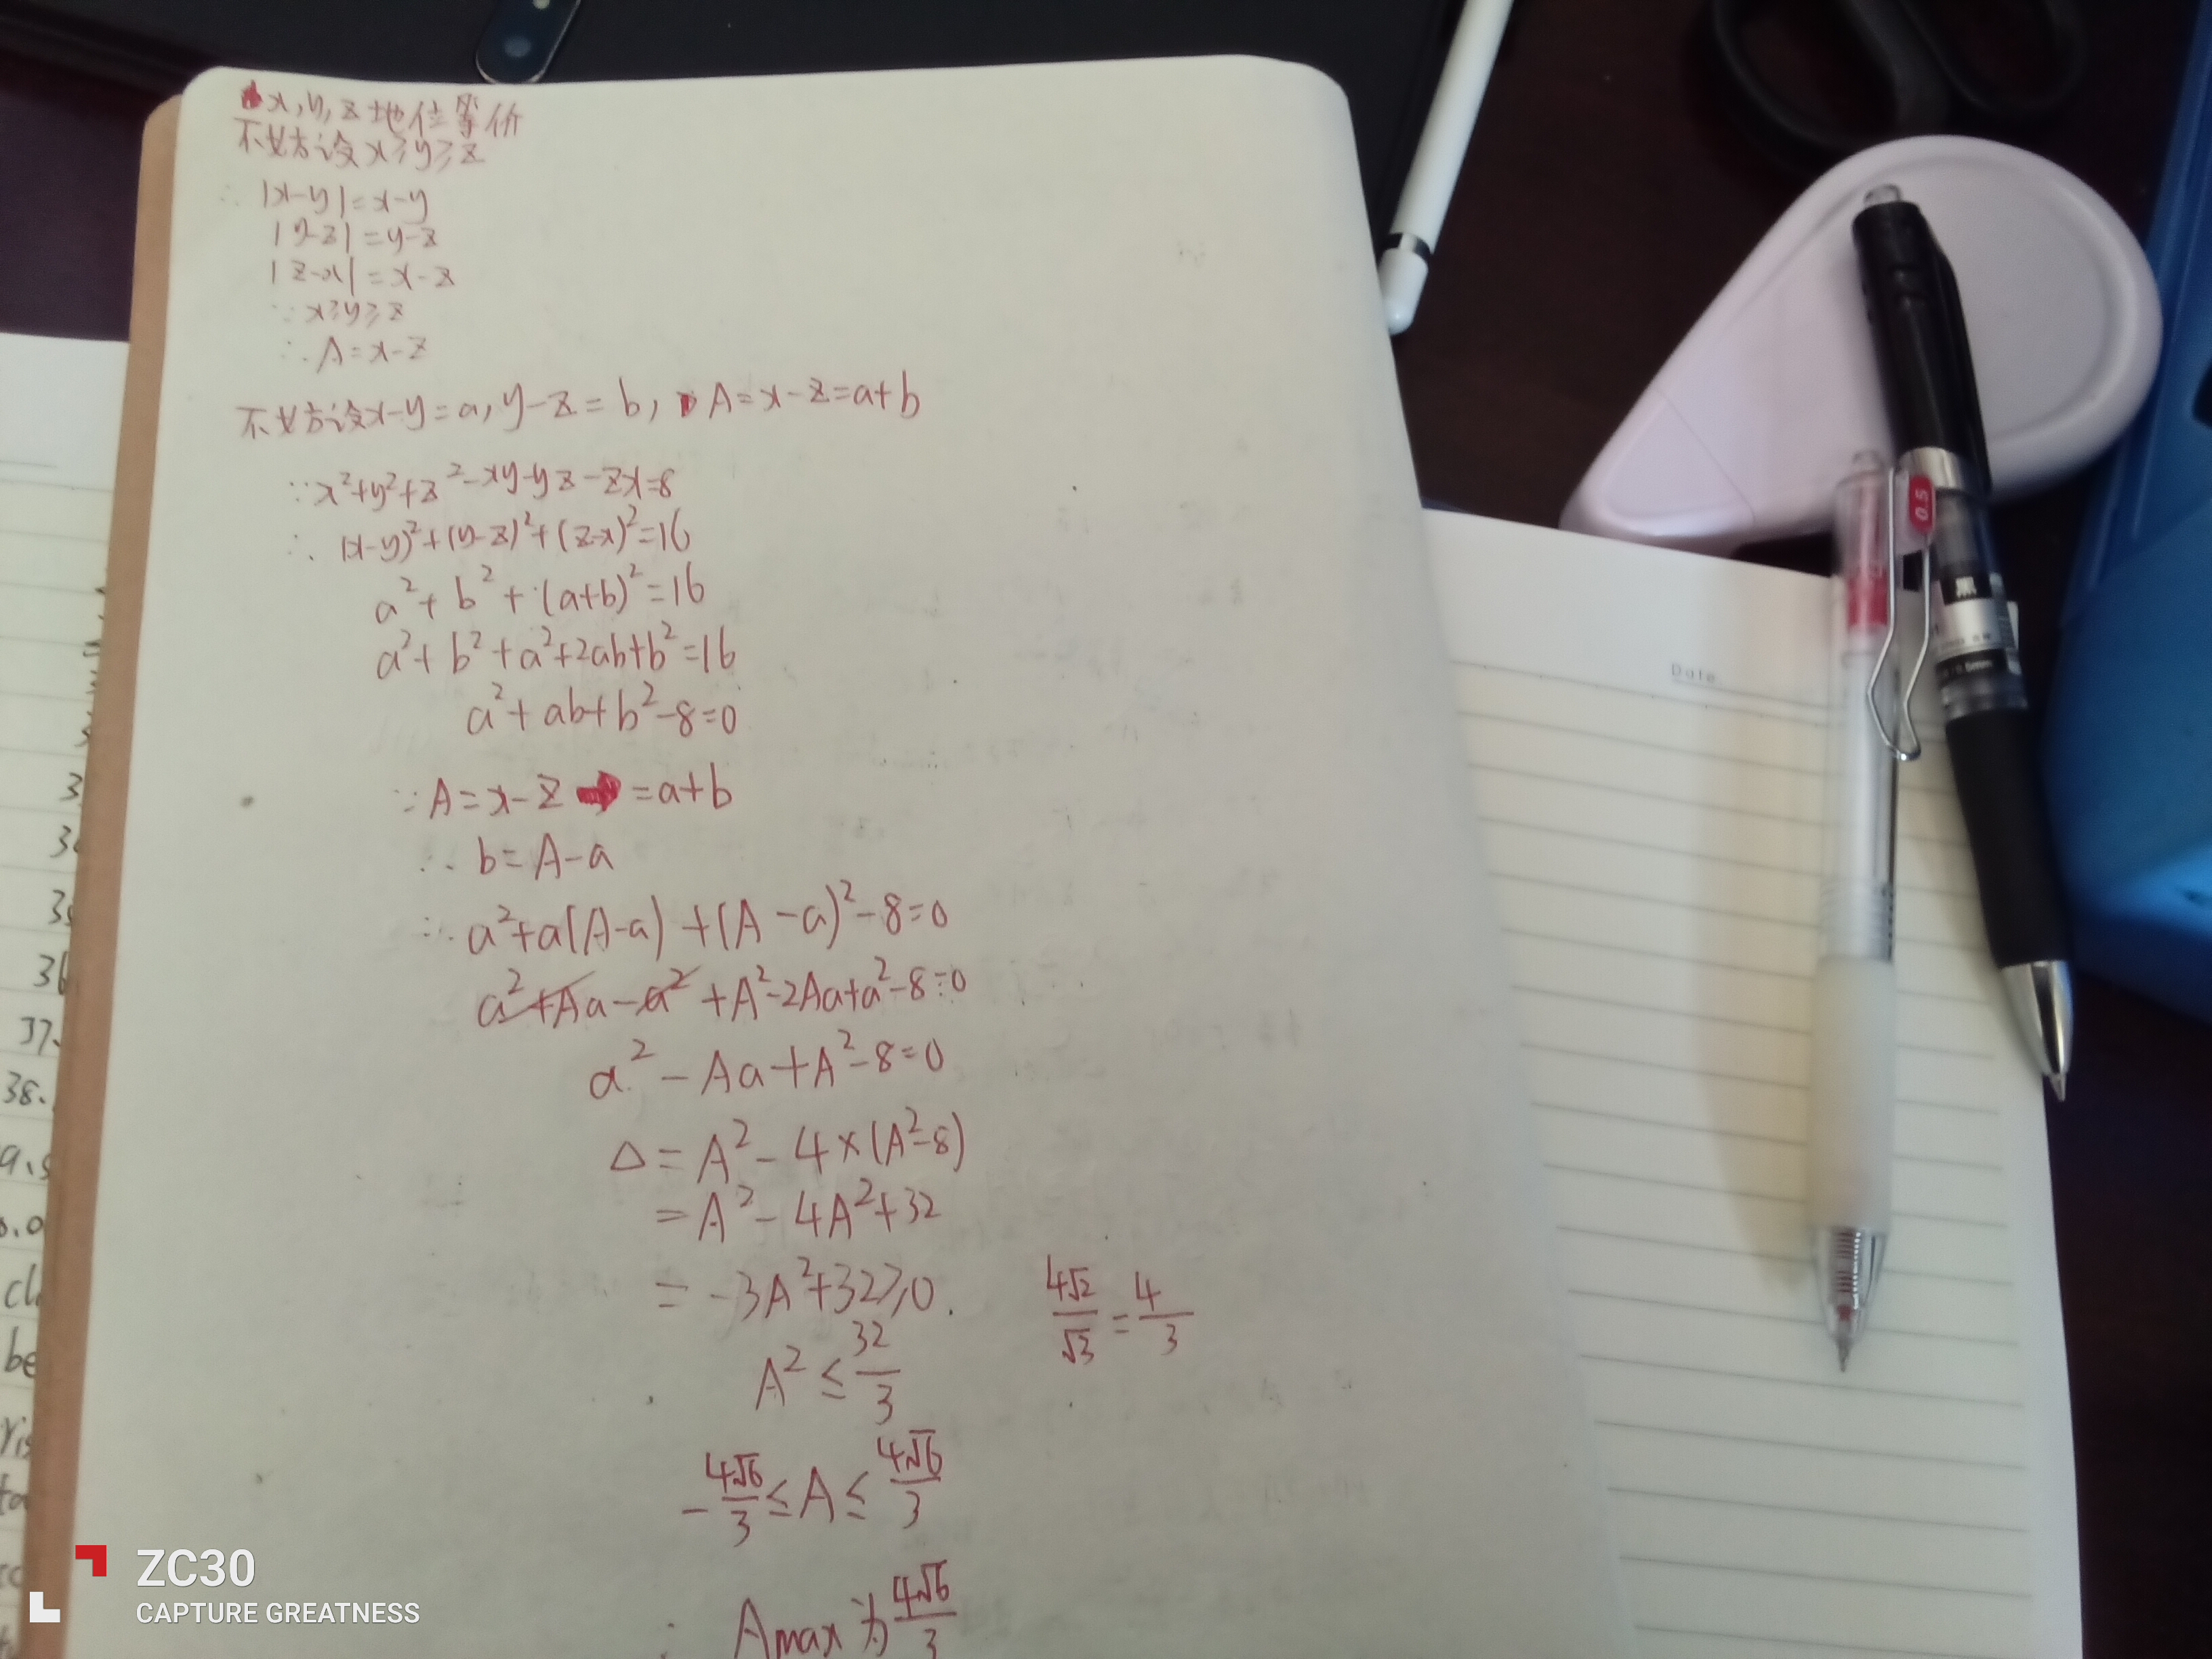 x,y,z地位等价
不妨设x≥y≥z
∴ |x-y|=x-y
|y-z|=y-z
|z-x|=x-z
∵x≥y≥z
∴A=x-z
不妨设x-y=a,y-z=b,A=x-z=a+b
∵x²+y²+z²-xy-yz-zx=8
∴(x-y)²+(y-z)²+(z-x)²=16
a²+b²+(a+b)²=16
a²+b²+a²+2ab+b²=16
a²+ab+b²-8=0
∵A=x-z=a+b
∴b=A-a
∴a²+a(A-a)+(A-a)²-8=0
a²+Aa-a²+A²-2Aa+a²-8=0
a²-Aa+A²-8=0
Δ=A²-4×(A²-8)
=A²-4A²+32
=-3A²+32≥0.
4√2/√3=4/3
A²≤32/3
-4√6/3≤A≤4√6/3
∴Amax为4√6/3
Date
0.5
3
3
36
37.
38.
ZC30
CAPTURE GREATNESS